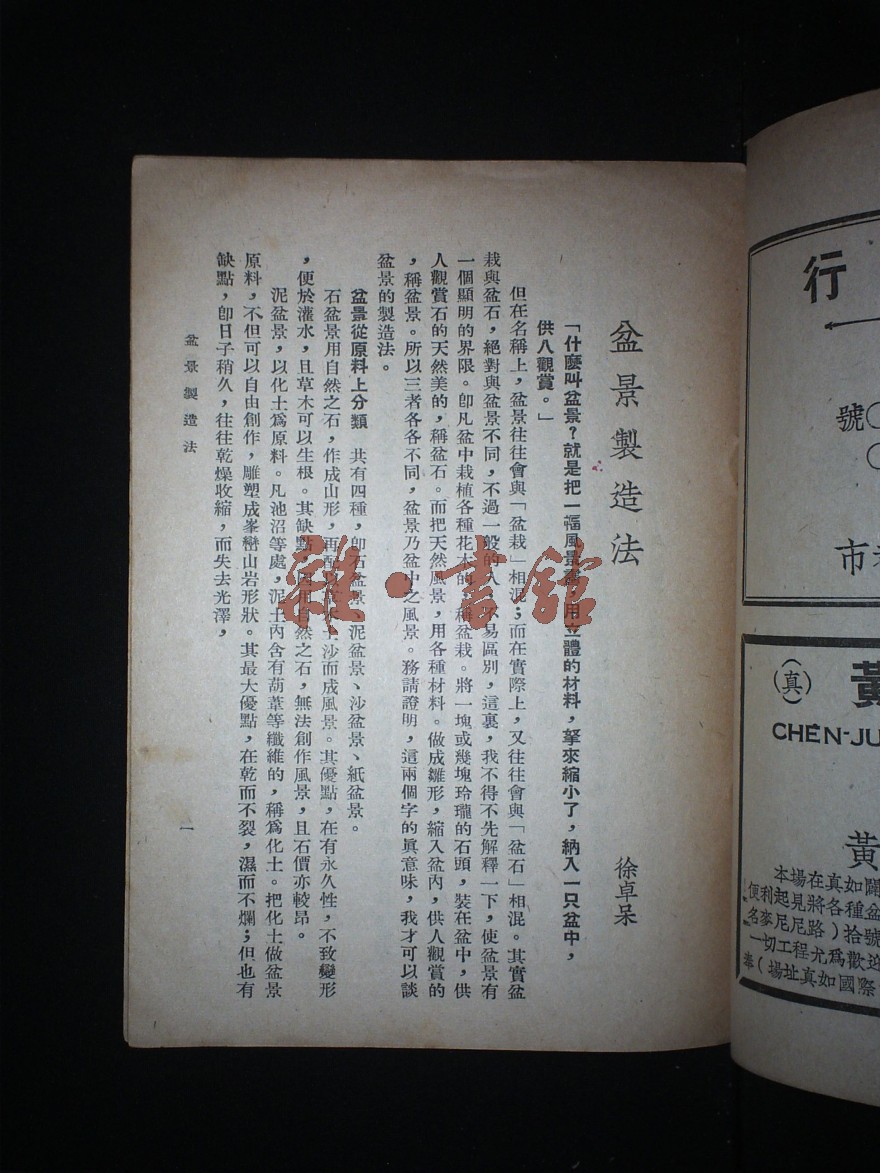 盆景製造法
徐卓呆
「什麽叫盆景?就是把一幅風景 用立體的材料,拏來縮小了,納入一只盆中,
供人觀賞。」
但在名稱上,盆景往往會與「盆栽」相混;而在實際上,又往往會與「盆石」相混。其實盆
栽與盆石,絕對與盆景不同,不過一般的人 不易區別,這裏,我不得不先解釋一下,使盆景有
一個顯明的界限。卽凡盆中栽植各種花木的 稱盆栽。將一塊或幾塊玲瓏的石頭,裝在盆中,供
人觀賞石的天然美的,稱盆石。而把天然風景,用各種材料。做成雛形,縮入盆內,供人觀賞的
,稱盆景。所以三者各各不同,盆景乃盆中之風景。務請證明,這兩個字的眞意味,我才可以談
盆景的製造法。
盆景從原料上分類 共有四種,卽石盆景、泥盆景、沙盆景、紙盆景。
石盆景用自然之石,作成山形,再配 沙而成風景。其優點,在有永久性,不致變形
,便於灌水,且草木可以生根。其缺點,因用自然之石,無法創作風景,且石價亦較昂。
泥盆景,以化土爲原料。凡池沼等處,泥土內含有葫葦等纖維的,稱爲化土。把化土做盆景
原料,不但可以自由創作,雕塑成峯巒山岩形狀。其最大優點,在乾而不裂,濕而不爛;但也有
缺點,卽日子稍久,往往乾燥收縮,而失去光澤,
盆景製造法
一
雜·書館
行
號
市
(真)
黃
CHEN-JU
黃
本場在真如
便利起見將各種盆
名麥尼尼路)拾號
一切工程尤爲歡迎
舉(場址真如國際